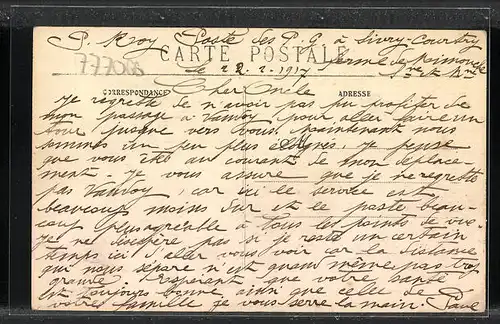 P. Roy Poste des P.G. à Sivry-Courtry
CARTE POSTALE
ferme de
777068
le 22.2.1917
Sne et Mne
CORRESPONDANCE
ADRESSE
Cher Oncle
Je regrette de n'avoir pas pu profiter de
mon passage à Vanvoy pour aller faire un
tour jusque vers vous. Maintenant nous
sommes un peu plus éloignés. Je pense
que vous êtes au courant de mon déplace-
ment. Je vous assure que je ne regrette
pas Vanvoy, car ici le service est
beaucoup moins dur et le poste beau-
coup plus agréable à tous les points de vue.
Je ne désespère pas si je reste un certain
temps ici d'aller vous voir car la distance
qui nous sépare n'est quand même pas trop
grande. Espérant que votre santé
est toujours bonne ainsi que celle de
votre famille je vous serre la main. Paul